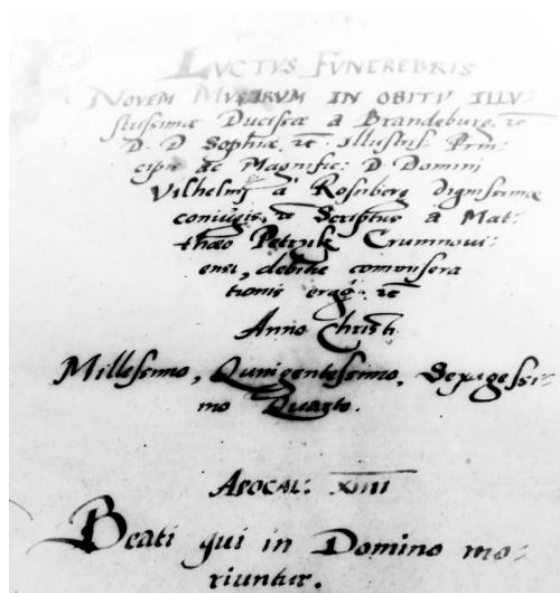 LVCTVS FVNEREBRIS
NOVEM MVSARVM IN OBITV ILLV-
strissimæ Ducissæ a Brandeburg. etc
D. D Sophiæ etc. Illustriss Prin-
cipis ac Magnific: D Domini
Vilhelmi a Rosnberg Dignissimæ
coniugis, etc Scriptus a Mat:
thæo Petryk Crumnovi:
ensi, debitæ commisera
tionis ergo etc
Anno Christi
Millesimo, Quingentesimo, Sexagessi-
mo Quarto.
APOCAL: XIIII
Beati qui in Domino mo:
riuntur.